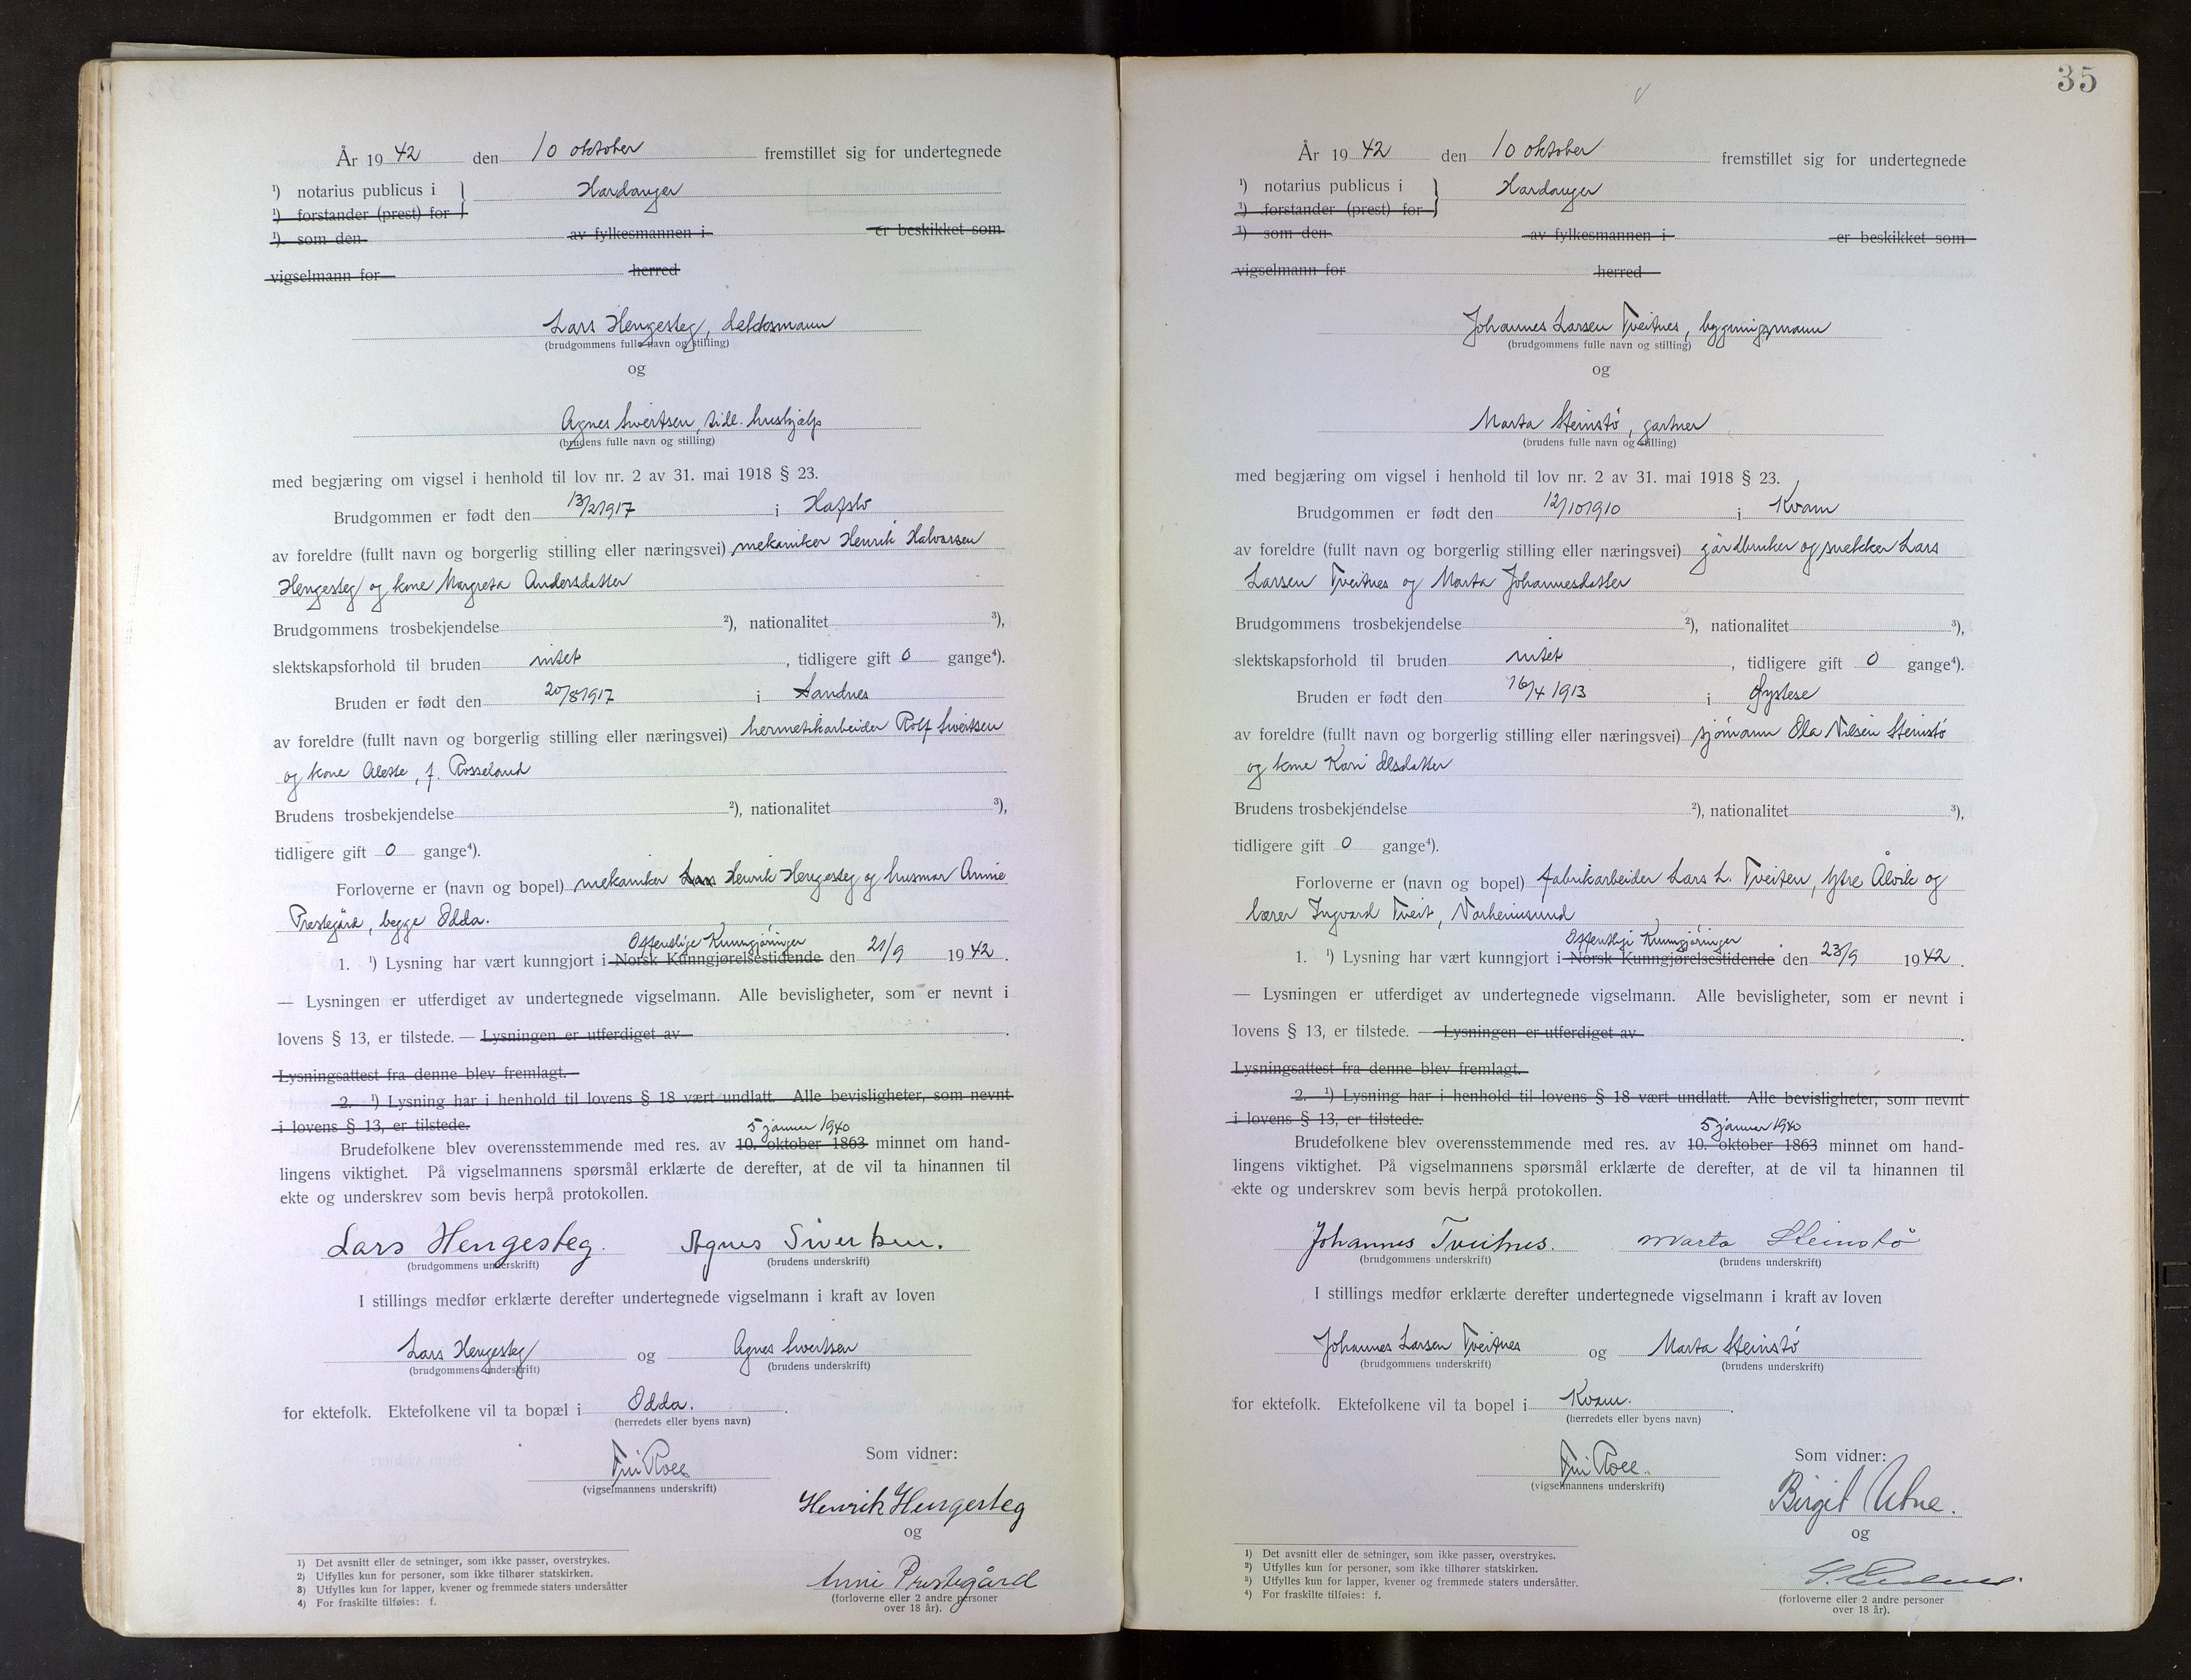 År 19 42 den 10 oktober fremstillet sig for undertegnede
¹) notarius publicus i Hardanger
¹) forstander (prest) for
¹) som den av fylkesmannen i er beskikket som
vigselmann for herred
Lars Hengesteg,
(brudgommens fulle navn og stilling)
og
Agnes Sivertsen, tidl. hushjælp
(brudens fulle navn og stilling)
med begjæring om vigsel i henhold til lov nr. 2 av 31. mai 1918 § 23.
Brudgommen er født den 13/2 1917 i Hafslo
av foreldre (fullt navn og borgerlig stilling eller næringsvei) mekaniker Henrik Halvorsen
Hengesteg og kone Margreta Andersdatter
Brudgommens trosbekjendelse ²), nationalitet ³),
slektskapsforhold til bruden intet , tidligere gift 0 gange⁴).
Bruden er født den 20/8 1917 i Sandnes
av foreldre (fullt navn og borgerlig stilling eller næringsvei) hermetikarbeider Rolf Sivertsen
og kone Alette, f. Rosseland
Brudens trosbekjendelse ²), nationalitet ³),
tidligere gift 0 gange⁴).
Forloverne er (navn og bopel) mekaniker Lars Henrik Hengesteg og husmor Annie
Prestegård, begge Odda.
Offentlige Kunngjøringer
1. ¹) Lysning har vært kunngjort i Norsk Kunngjørelsestidende den 21/9 1942.
— Lysningen er utferdiget av undertegnede vigselmann. Alle bevisligheter, som er nevnt i
lovens § 13, er tilstede. — Lysningen er utferdiget av .
Lysningsattest fra denne blev fremlagt.
2. ¹) Lysning har i henhold til lovens § 18 vært undlatt. Alle bevisligheter, som nevnt
i lovens § 13, er tilstede.
5 januar 1940
Brudefolkene blev overensstemmende med res. av 10. oktober 1863 minnet om hand-
lingens viktighet. På vigselmannens spørsmål erklærte de derefter, at de vil ta hinannen til
ekte og underskrev som bevis herpå protokollen.
Lars Hengesteg. Agnes Sivertsen.
(brudgommens underskrift) (brudens underskrift)
I stillings medfør erklærte derefter undertegnede vigselmann i kraft av loven
Lars Hengesteg og Agnes Sivertsen
(brudgommens underskrift) (brudens underskrift)
for ektefolk. Ektefolkene vil ta bopæl i Odda.
(herredets eller byens navn)
Som vidner:
(vigselmannens underskrift)
Henrik Hengesteg
og
Anni Prestegård
(forloverne eller 2 andre personer
over 18 år).
1) Det avsnitt eller de setninger, som ikke passer, overstrykes.
2) Utfylles kun for personer, som ikke tilhører statskirken.
3) Utfylles kun for lapper, kvener og fremmede staters undersåtter
4) For fraskilte tilføies: f.
35
År 19 42 den 10 oktober fremstillet sig for undertegnede
¹) notarius publicus i Hardanger
¹) forstander (prest) for
¹) som den av fylkesmannen i er beskikket som
vigselmann for herred
Johannes Larsen Tveitnes, bygningsmann
(brudgommens fulle navn og stilling)
og
Marta Steinstø, gartner
(brudens fulle navn og stilling)
med begjæring om vigsel i henhold til lov nr. 2 av 31. mai 1918 § 23.
Brudgommen er født den 12/10 1910 i Kvam
av foreldre (fullt navn og borgerlig stilling eller næringsvei) gårdbruker og snekker Lars
Larsen Tveitnes og Marta Johannesdatter
Brudgommens trosbekjendelse ²), nationalitet ³),
slektskapsforhold til bruden intet , tidligere gift 0 gange⁴).
Bruden er født den 16/4 1913 i Øystese
av foreldre (fullt navn og borgerlig stilling eller næringsvei) sjømann Ola Nilsen Steinstø
og kone Kari Olsdatter
Brudens trosbekjendelse ²), nationalitet ³),
tidligere gift 0 gange⁴).
Forloverne er (navn og bopel) fabrikarbeider Lars L. Tveiten, Ytre Ålvik og
lærer Ingvard Tveit, Norheimsund
Offentlige Kunngjøringer
1. ¹) Lysning har vært kunngjort i Norsk Kunngjørelsestidende den 23/9 1942.
— Lysningen er utferdiget av undertegnede vigselmann. Alle bevisligheter, som er nevnt i
lovens § 13, er tilstede. — Lysningen er utferdiget av .
Lysningsattest fra denne blev fremlagt.
2. ¹) Lysning har i henhold til lovens § 18 vært undlatt. Alle bevisligheter, som nevnt
i lovens § 13, er tilstede.
5 januar 1940
Brudefolkene blev overensstemmende med res. av 10. oktober 1863 minnet om hand-
lingens viktighet. På vigselmannens spørsmål erklærte de derefter, at de vil ta hinannen til
ekte og underskrev som bevis herpå protokollen.
Johannes Tveitnes. Marta Steinstø
(brudgommens underskrift) (brudens underskrift)
I stillings medfør erklærte derefter undertegnede vigselmann i kraft av loven
Johannes Larsen Tveitnes og Marta Steinstø
(brudgommens underskrift) (brudens underskrift)
for ektefolk. Ektefolkene vil ta bopel i Kvam.
(herredets eller byens navn)
Som vidner:
(vigselmannens underskrift)
Birgit Utne.
og
(forloverne eller 2 andre personer
over 18 år).
1) Det avsnitt eller de setninger, som ikke passer, overstrykes.
2) Utfylles kun for personer, som ikke tilhører statskirken.
3) Utfylles kun for lapper, kvener og fremmede staters undersåtter.
4) For fraskilte tilføies: f.